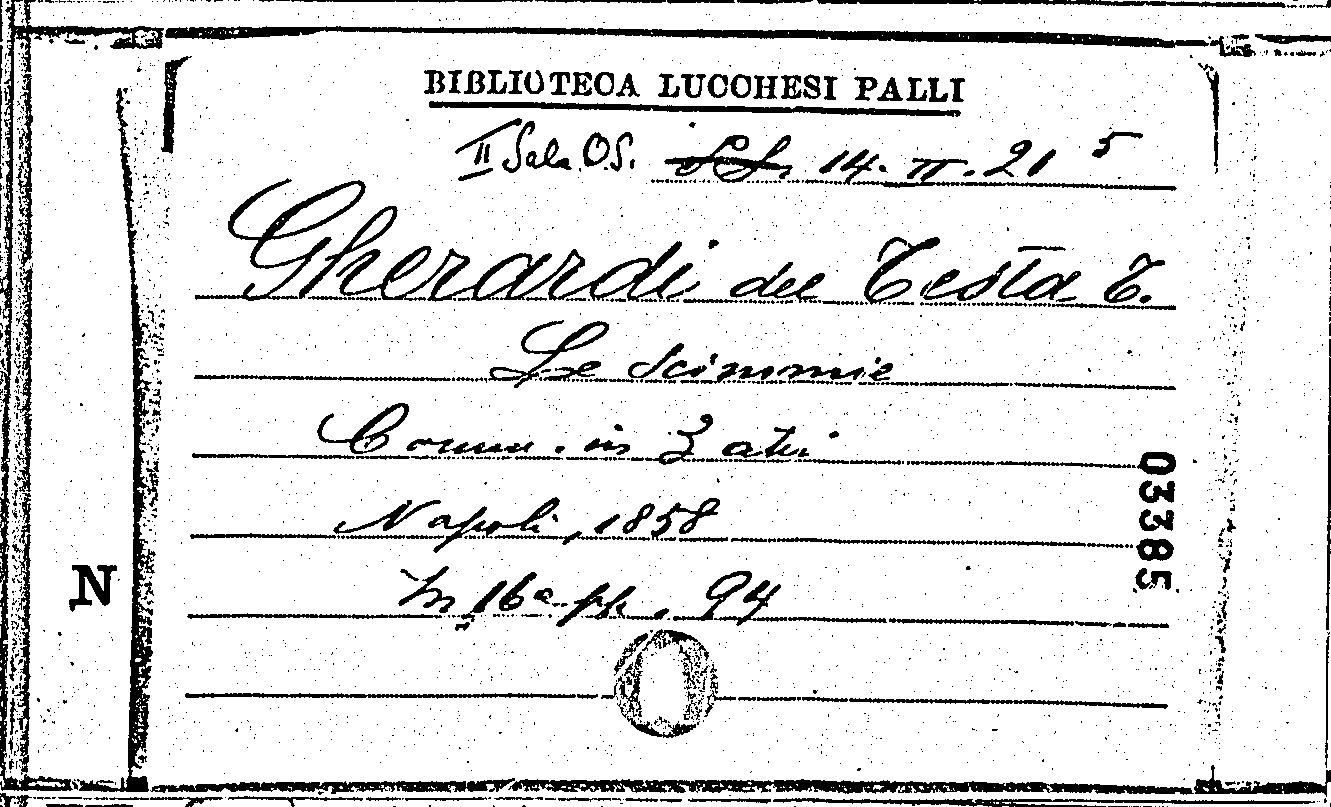 BIBLIOTECA LUCCHESI PALLI
II Sala O.S. 14. II. 21 5
Gherardi del Testa T.
Le Scimmie
Comm. in 3 atti
Napoli, 1858
In 16° pp. 94
03385
N